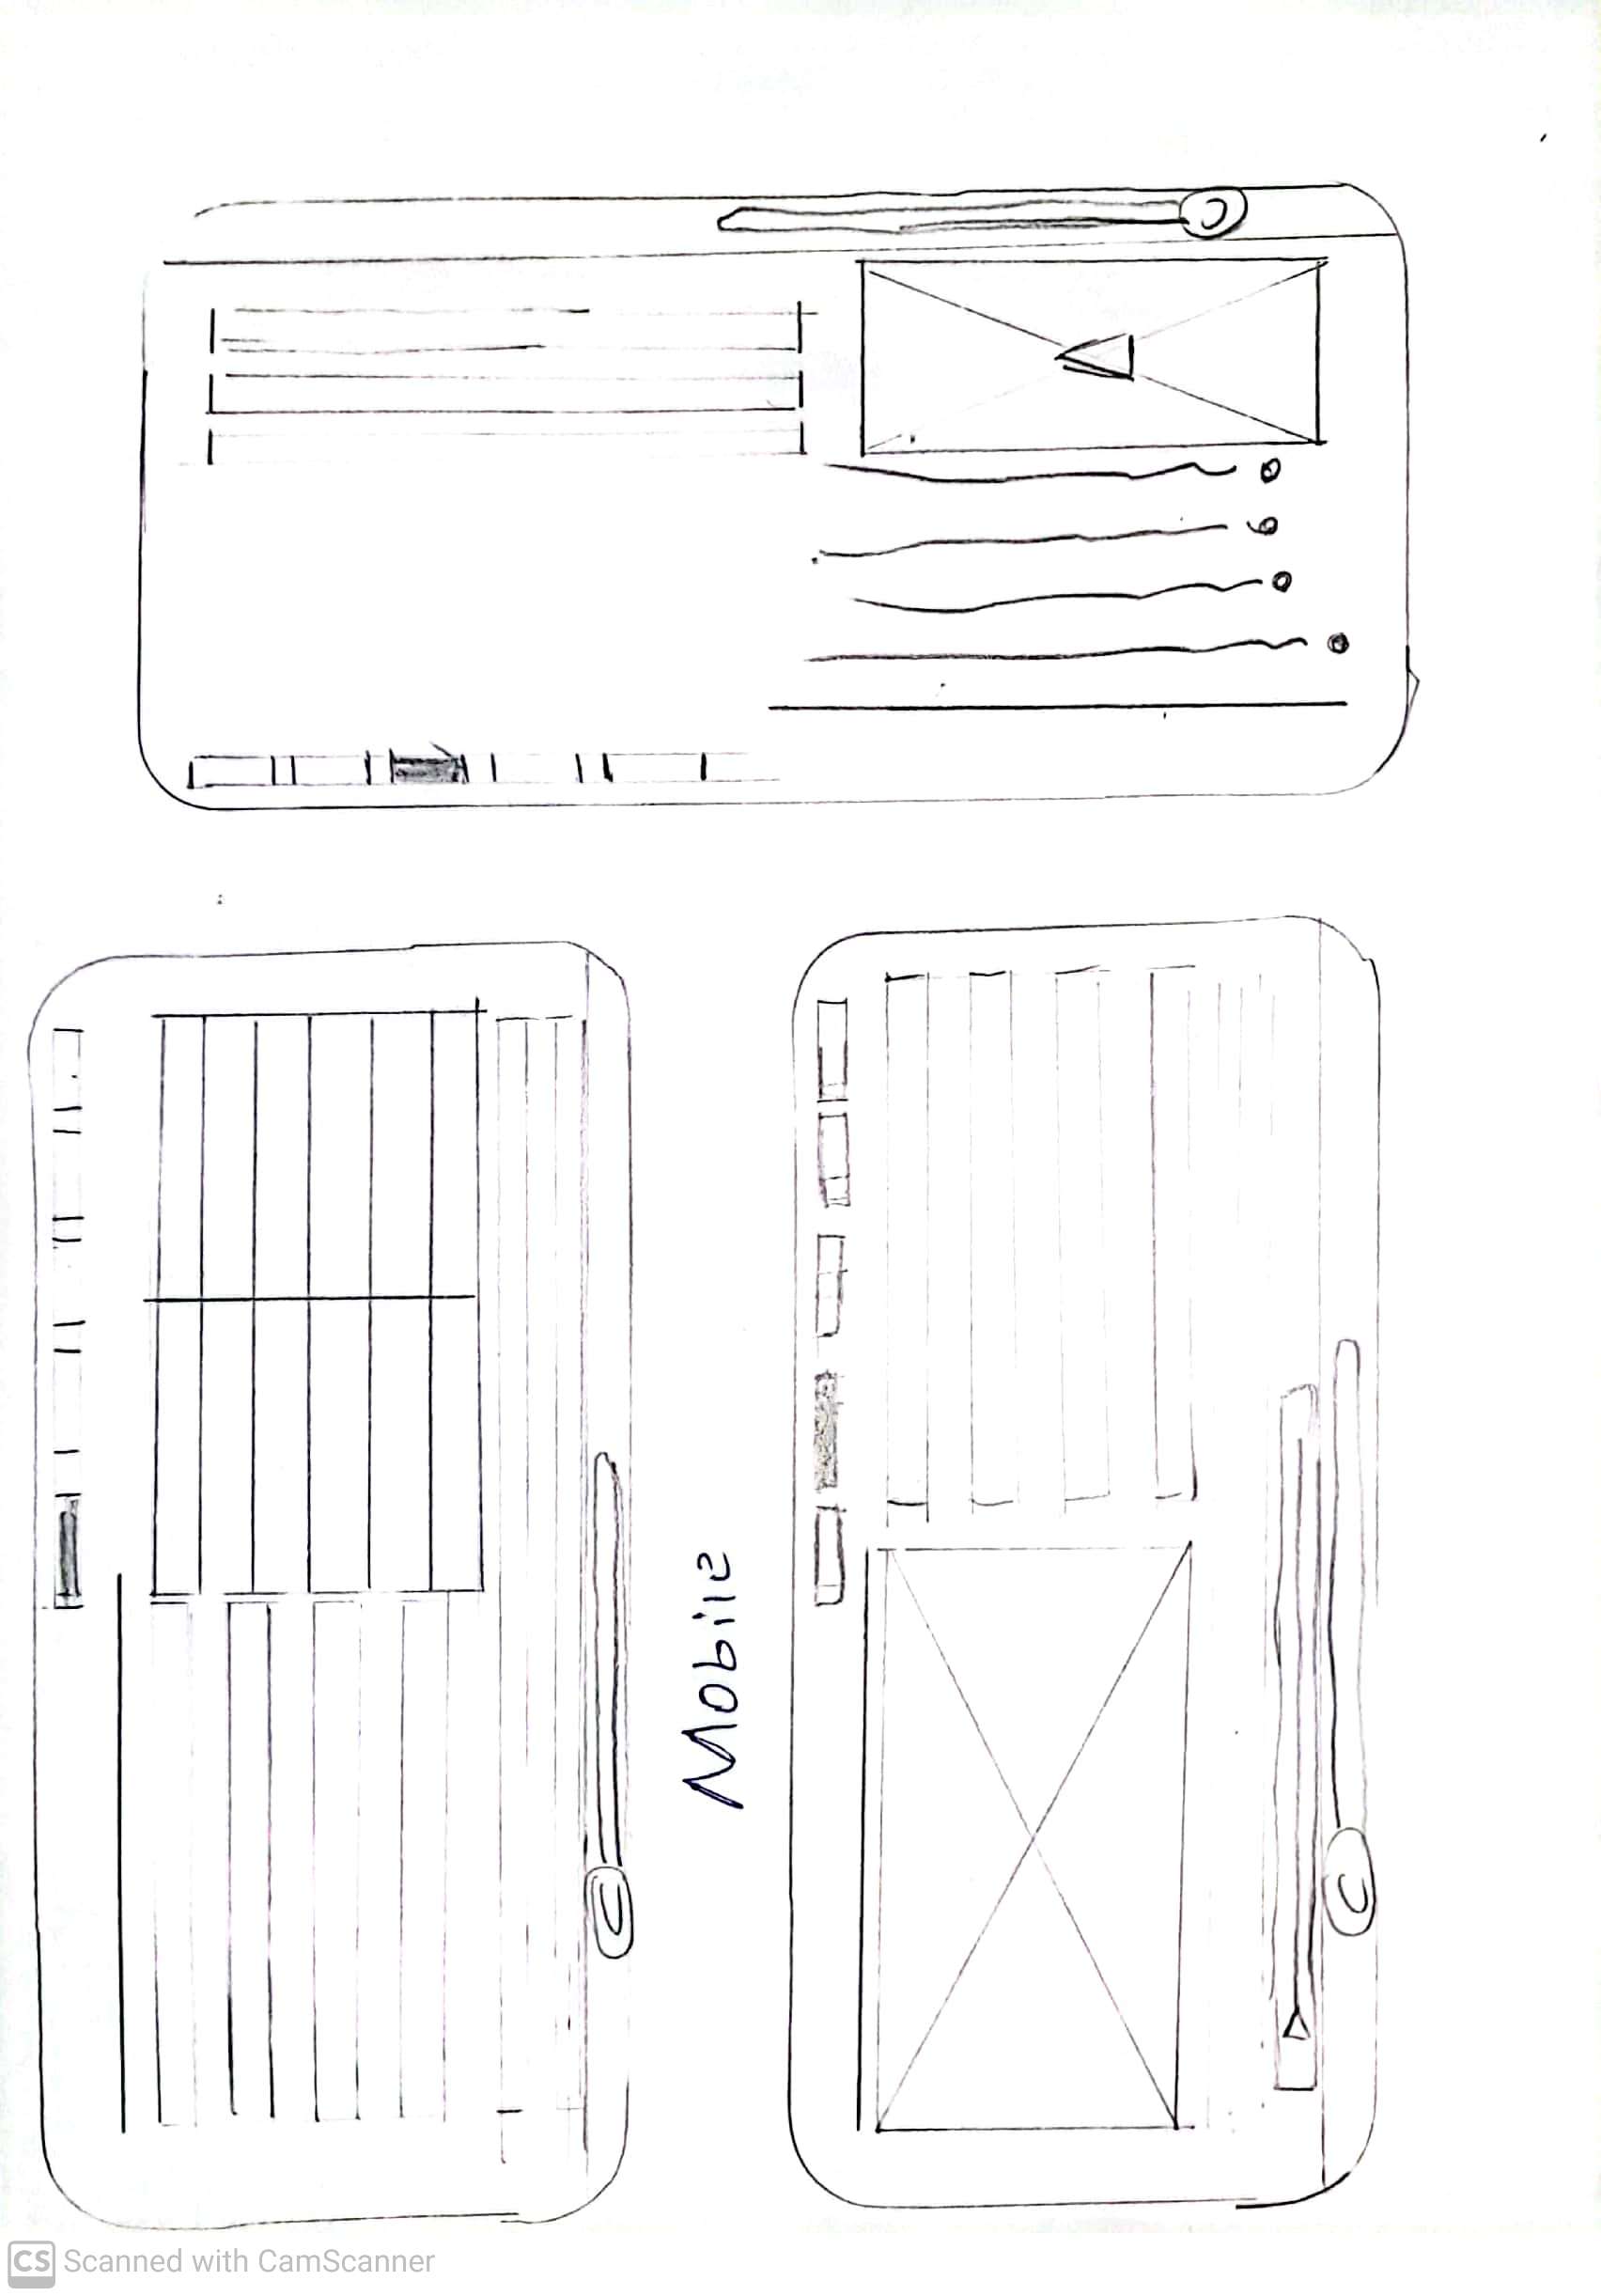 Mobile
CS Scanned with CamScanner